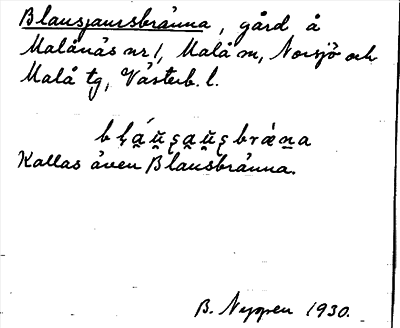 Blausjaursbränna, gård å
Malånäs nr 1, Malå sn, Norsjö och
Malå tg, Västerb. l.
Kallas även Blausbränna.
B. Nyppen 1930.